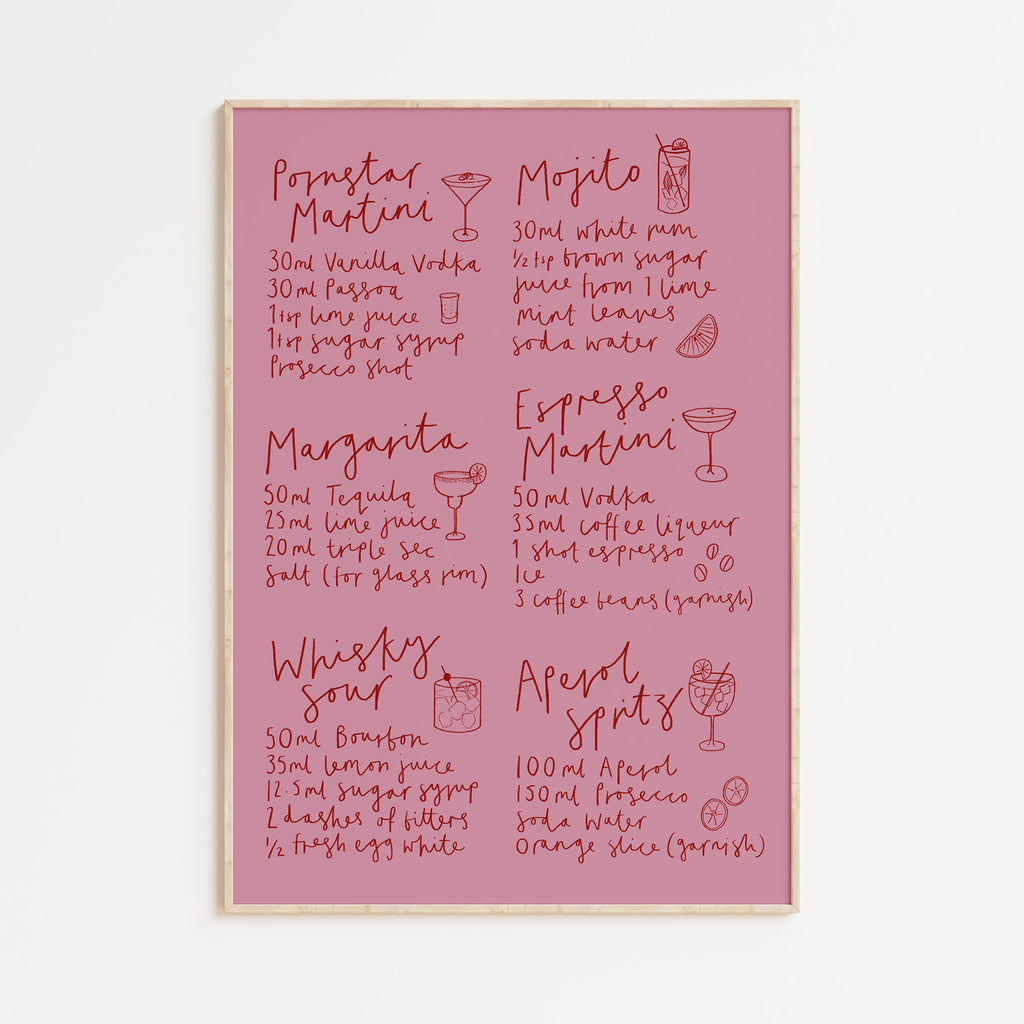 Pornstar
Martini
30ml Vanilla Vodka
30ml Passoa
1tsp lime juice
1tsp sugar syrup
Prosecco shot
Mojito
30ml white rum
1/2 tsp brown sugar
juice from 1 lime
mint leaves
soda water
Margarita
50ml Tequila
25ml lime juice
20ml triple sec
salt (for glass rim)
Espresso
Martini
50ml Vodka
35ml coffee liqueur
1 shot espresso
Ice
3 coffee beans (garnish)
Whisky
sour
50ml Bourbon
35ml lemon juice
12.5ml sugar syrup
2 dashes of bitters
1/2 fresh egg white
Aperol
spritz
100ml Aperol
150ml Prosecco
soda water
orange slice (garnish)